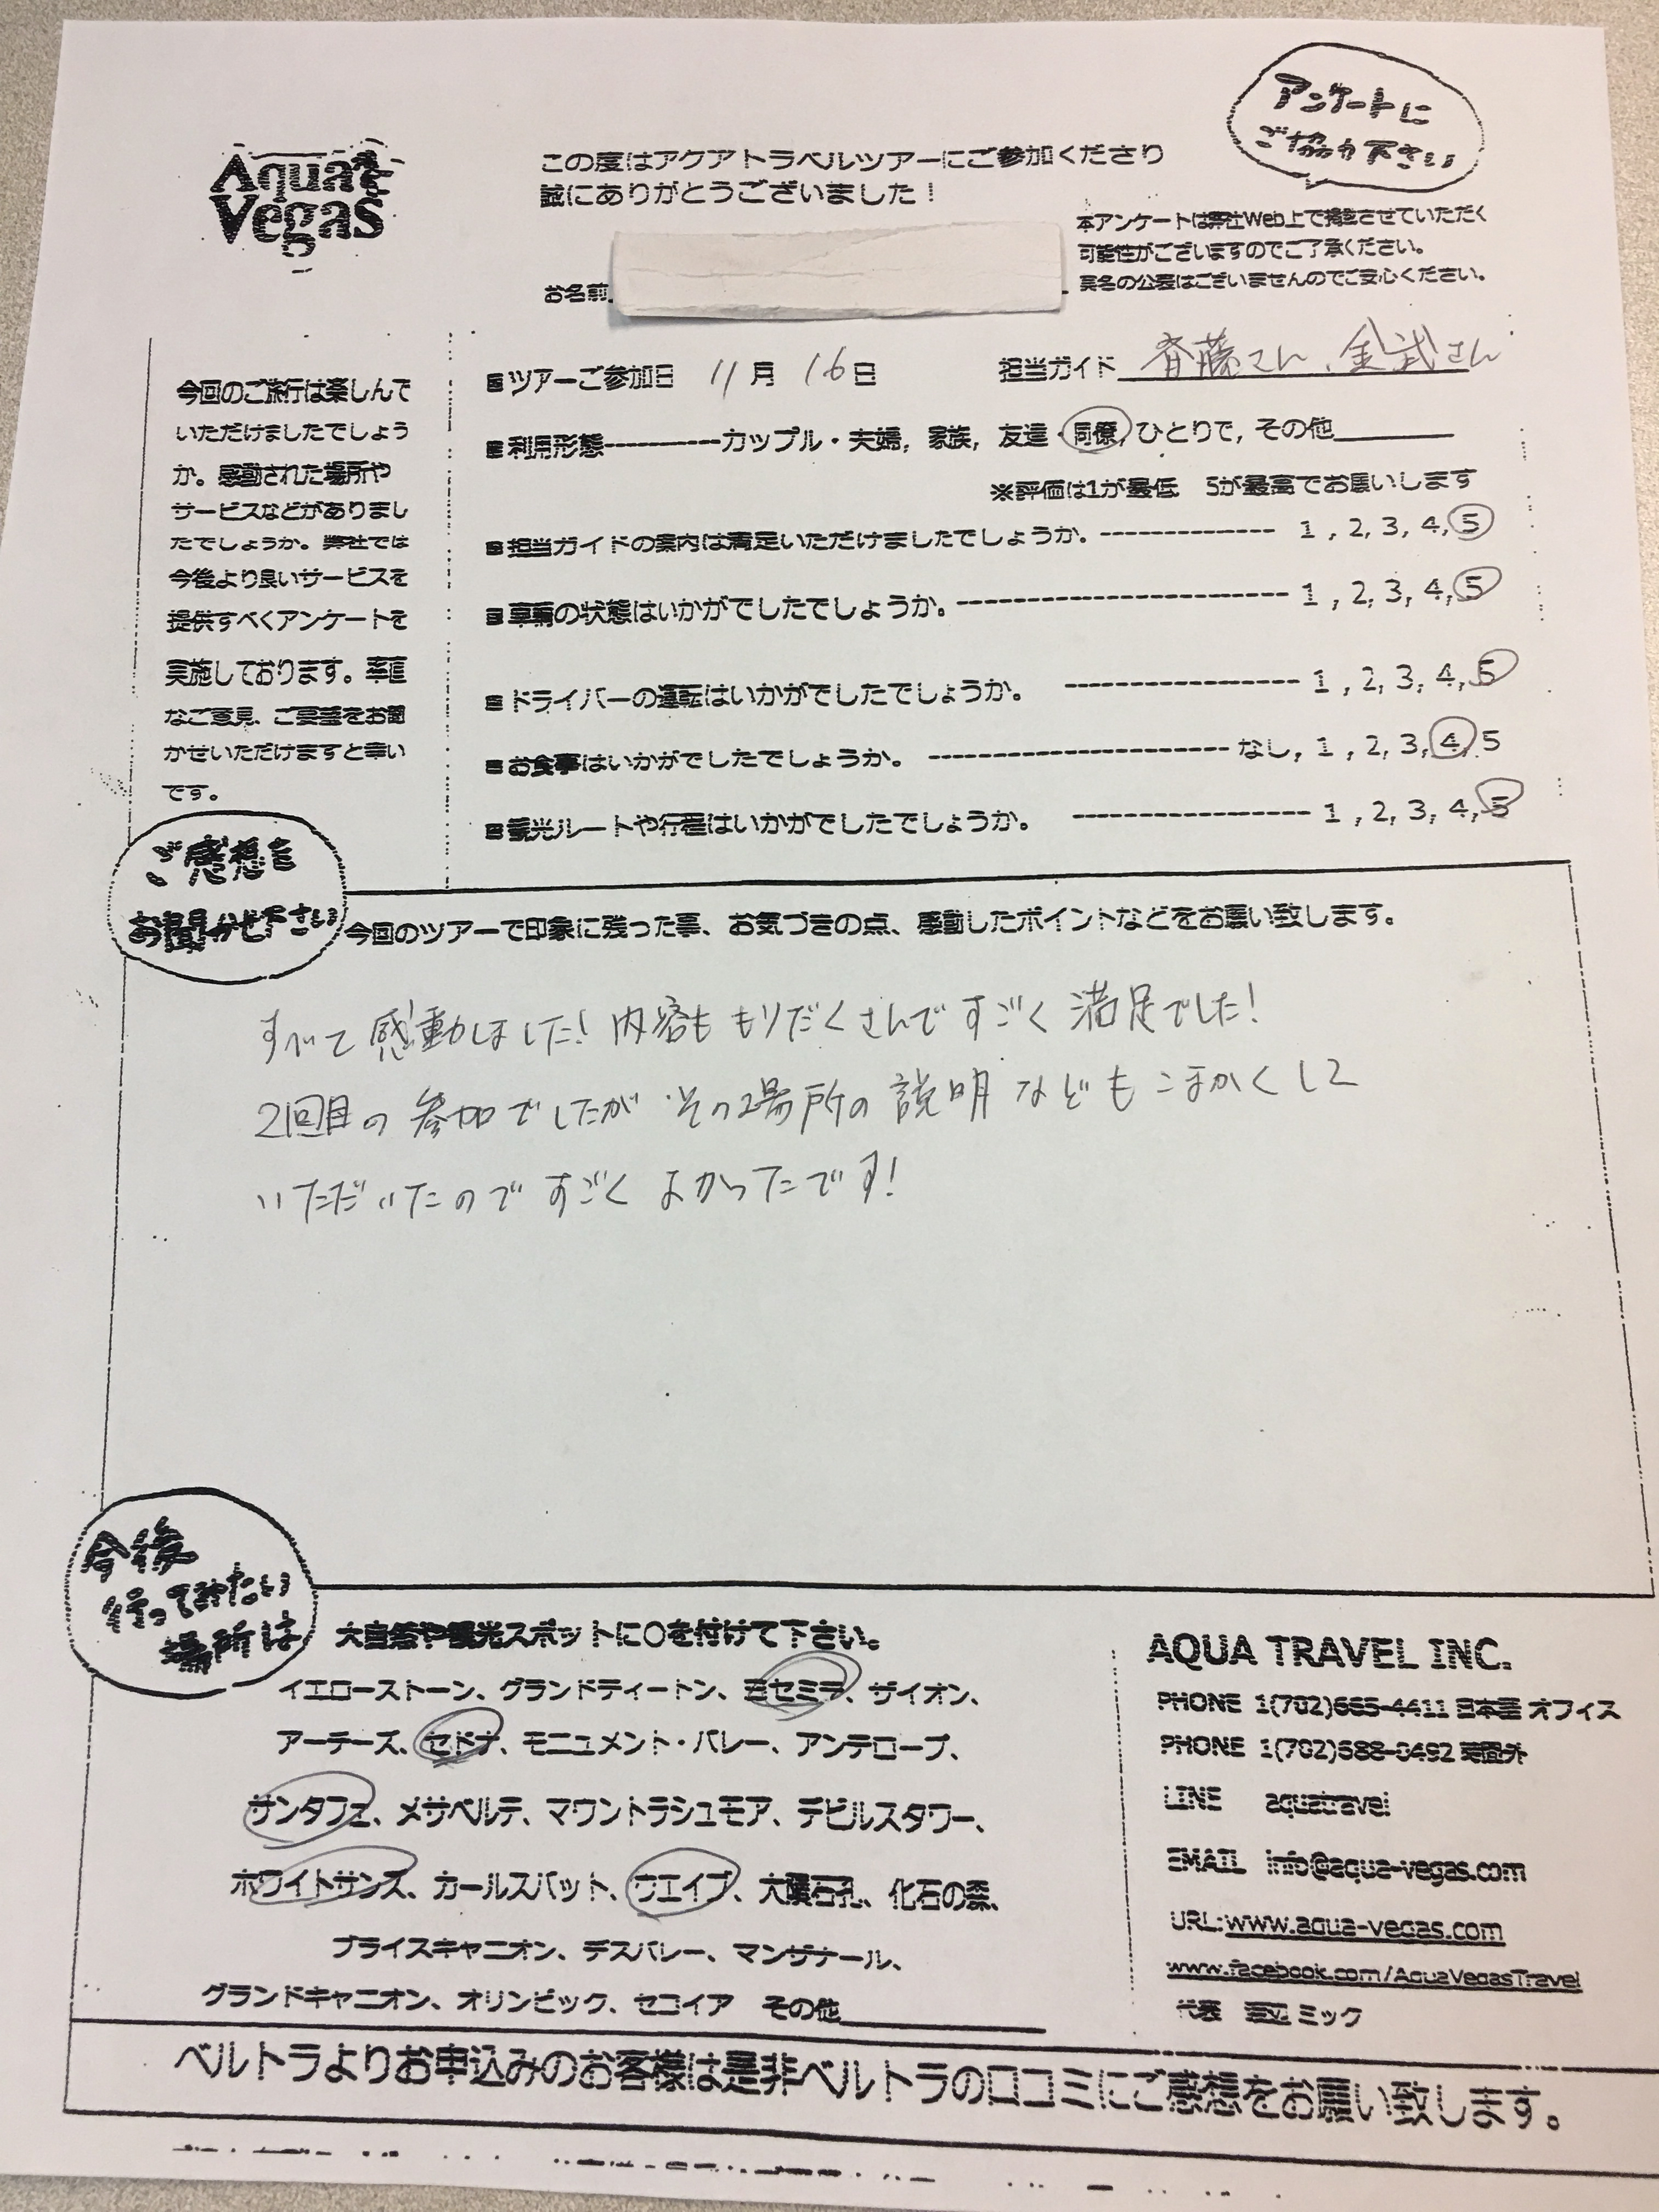 アンケートに
ご協力下さい
Aqua
Vegas
この度はアクアトラベルツアーにご参加くださり
誠にありがとうございました！
本アンケートは弊社Web上で掲載させていただく
可能性がございますのでご了承ください。
実名の公表はございませんのでご安心ください。
お名前
■ツアーご参加日 11月 16日
担当ガイド 斉藤さん、金武さん
■利用形態----------カップル・夫婦, 家族, 友達・同僚, ひとりで, その他
※評価は1が最低 5が最高でお願いします
■担当ガイドの案内は満足いただけましたでしょうか。------------- 1 , 2, 3, 4, 5
■車輌の状態はいかがでしたでしょうか。------------------------ 1 , 2, 3, 4, 5
■ドライバーの運転はいかがでしたでしょうか。 ----------------- 1 , 2, 3, 4, 5
■お食事はいかがでしたでしょうか。 ---------------------- なし, 1 , 2, 3, 4, 5
■観光ルートや行程はいかがでしたでしょうか。 ----------------- 1 , 2, 3, 4, 5
今回のご旅行は楽しんで
いただけましたでしょう
か。感動された場所や
サービスなどがありまし
たでしょうか。弊社では
今後より良いサービスを
提供すべくアンケートを
実施しております。率直
なご意見、ご要望をお聞
かせいただけますと幸い
です。
ご感想を
お聞かせ下さい
今回のツアーで印象に残った事、お気づきの点、感動したポイントなどをお願い致します。
すべて感動しました！内容ももりだくさんですごく満足でした！
2回目の参加でしたが その場所の説明などもこまかくして
いただいたのですごくよかったです！
今後
行ってみたい
場所は
大自然や観光スポットに〇を付けて下さい。
イエローストーン、グランドティートン、ヨセミテ、ザイオン、
アーチーズ、セドナ、モニュメント・バレー、アンテロープ、
サンタフェ、メサベルデ、マウントラシュモア、デビルスタワー、
ホワイトサンズ、カールスバット、ウエイブ、大隕石孔、化石の森、
ブライスキャニオン、デスバレー、マンザナール、
グランドキャニオン、オリンピック、セコイア その他
AQUA TRAVEL INC.
PHONE 1(702)665-4411 日本語 オフィス
PHONE 1(702)588-0492 時間外
LINE aquatravel
EMAIL info@aqua-vegas.com
URL:www.aqua-vegas.com
www.facebook.com/AquaVegasTravel
代表 ミック
ベルトラよりお申込みのお客様は是非ベルトラの口コミにご感想をお願い致します。